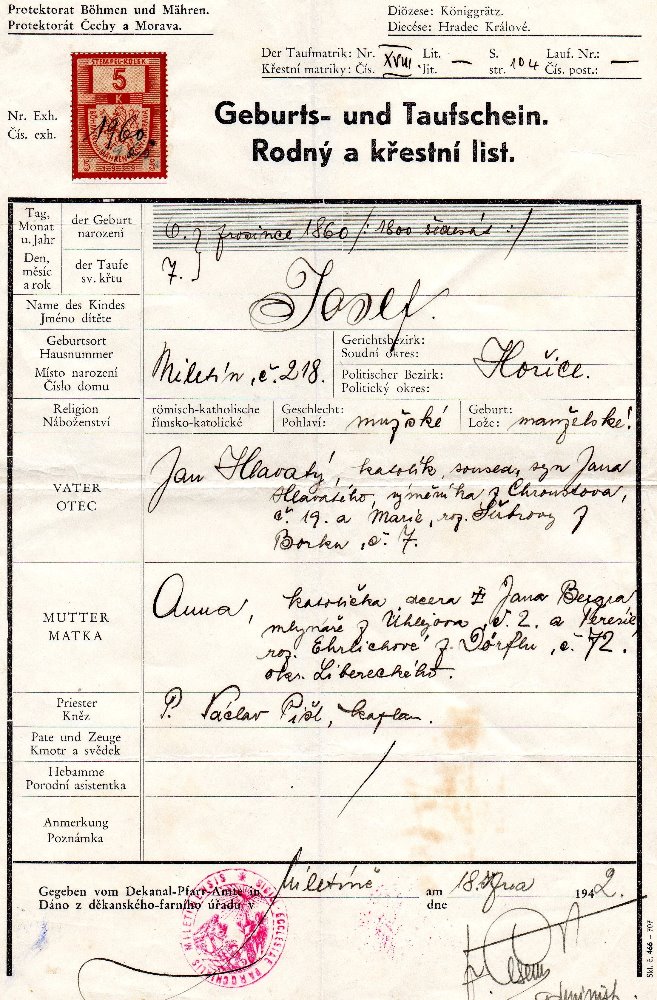 Protektorat Böhmen und Mähren.
Protektorát Čechy a Morava.
Diözese: Königgrätz.
Diecése: Hradec Králové.
Der Taufmatrik: Nr. XVIII Lit. — S. 104 Lauf. Nr.: —
Křestní matriky: Čís. lit. str. Čís. post.:
STEMPEL-KOLEK
5
K
Nr. Exh.
Čís. exh.
1960
Geburts- und Taufschein.
Rodný a křestní list.
Tag, Monat u. Jahr
der Geburt
narození
6. prosince 1860 /: 1800 šedesát :/
Den, měsíc a rok
der Taufe
sv. křtu
7.
Name des Kindes
Jméno dítěte
Josef.
Geburtsort
Hausnummer
Místo narození
Číslo domu
Miletín, č. 218.
Gerichtsbezirk:
Soudní okres:
Politischer Bezirk:
Politický okres:
Hořice.
Religion
Náboženství
römisch-katholische
římsko-katolické
Geschlecht:
Pohlaví: mužské
Geburt:
Lože: manželské!
VATER
OTEC
Jan Hlavatý, katolík, soused, syn Jana
Hlavatého, výměníka z Chroustova,
č. 19. a Marie, roz. z
Borku, č. 7.
MUTTER
MATKA
Anna, katolička, dcera Jana Bergra
mlynáře z Úhlejova, č. 2. a Terezie,
roz. Ehrlichové z Dörflu, č. 72.
okr. Libereckého.
Priester
Kněz
P. Václav Pišl, kaplan.
Pate und Zeuge
Kmotr a svědek
Hebamme
Porodní asistentka
Anmerkung
Poznámka
Gegeben vom Dekanal-Pfarr-Amte in
Dáno z děkanského-farního úřadu v
Miletíně
am
dne
18. 1942.
Skl. č. 466 –